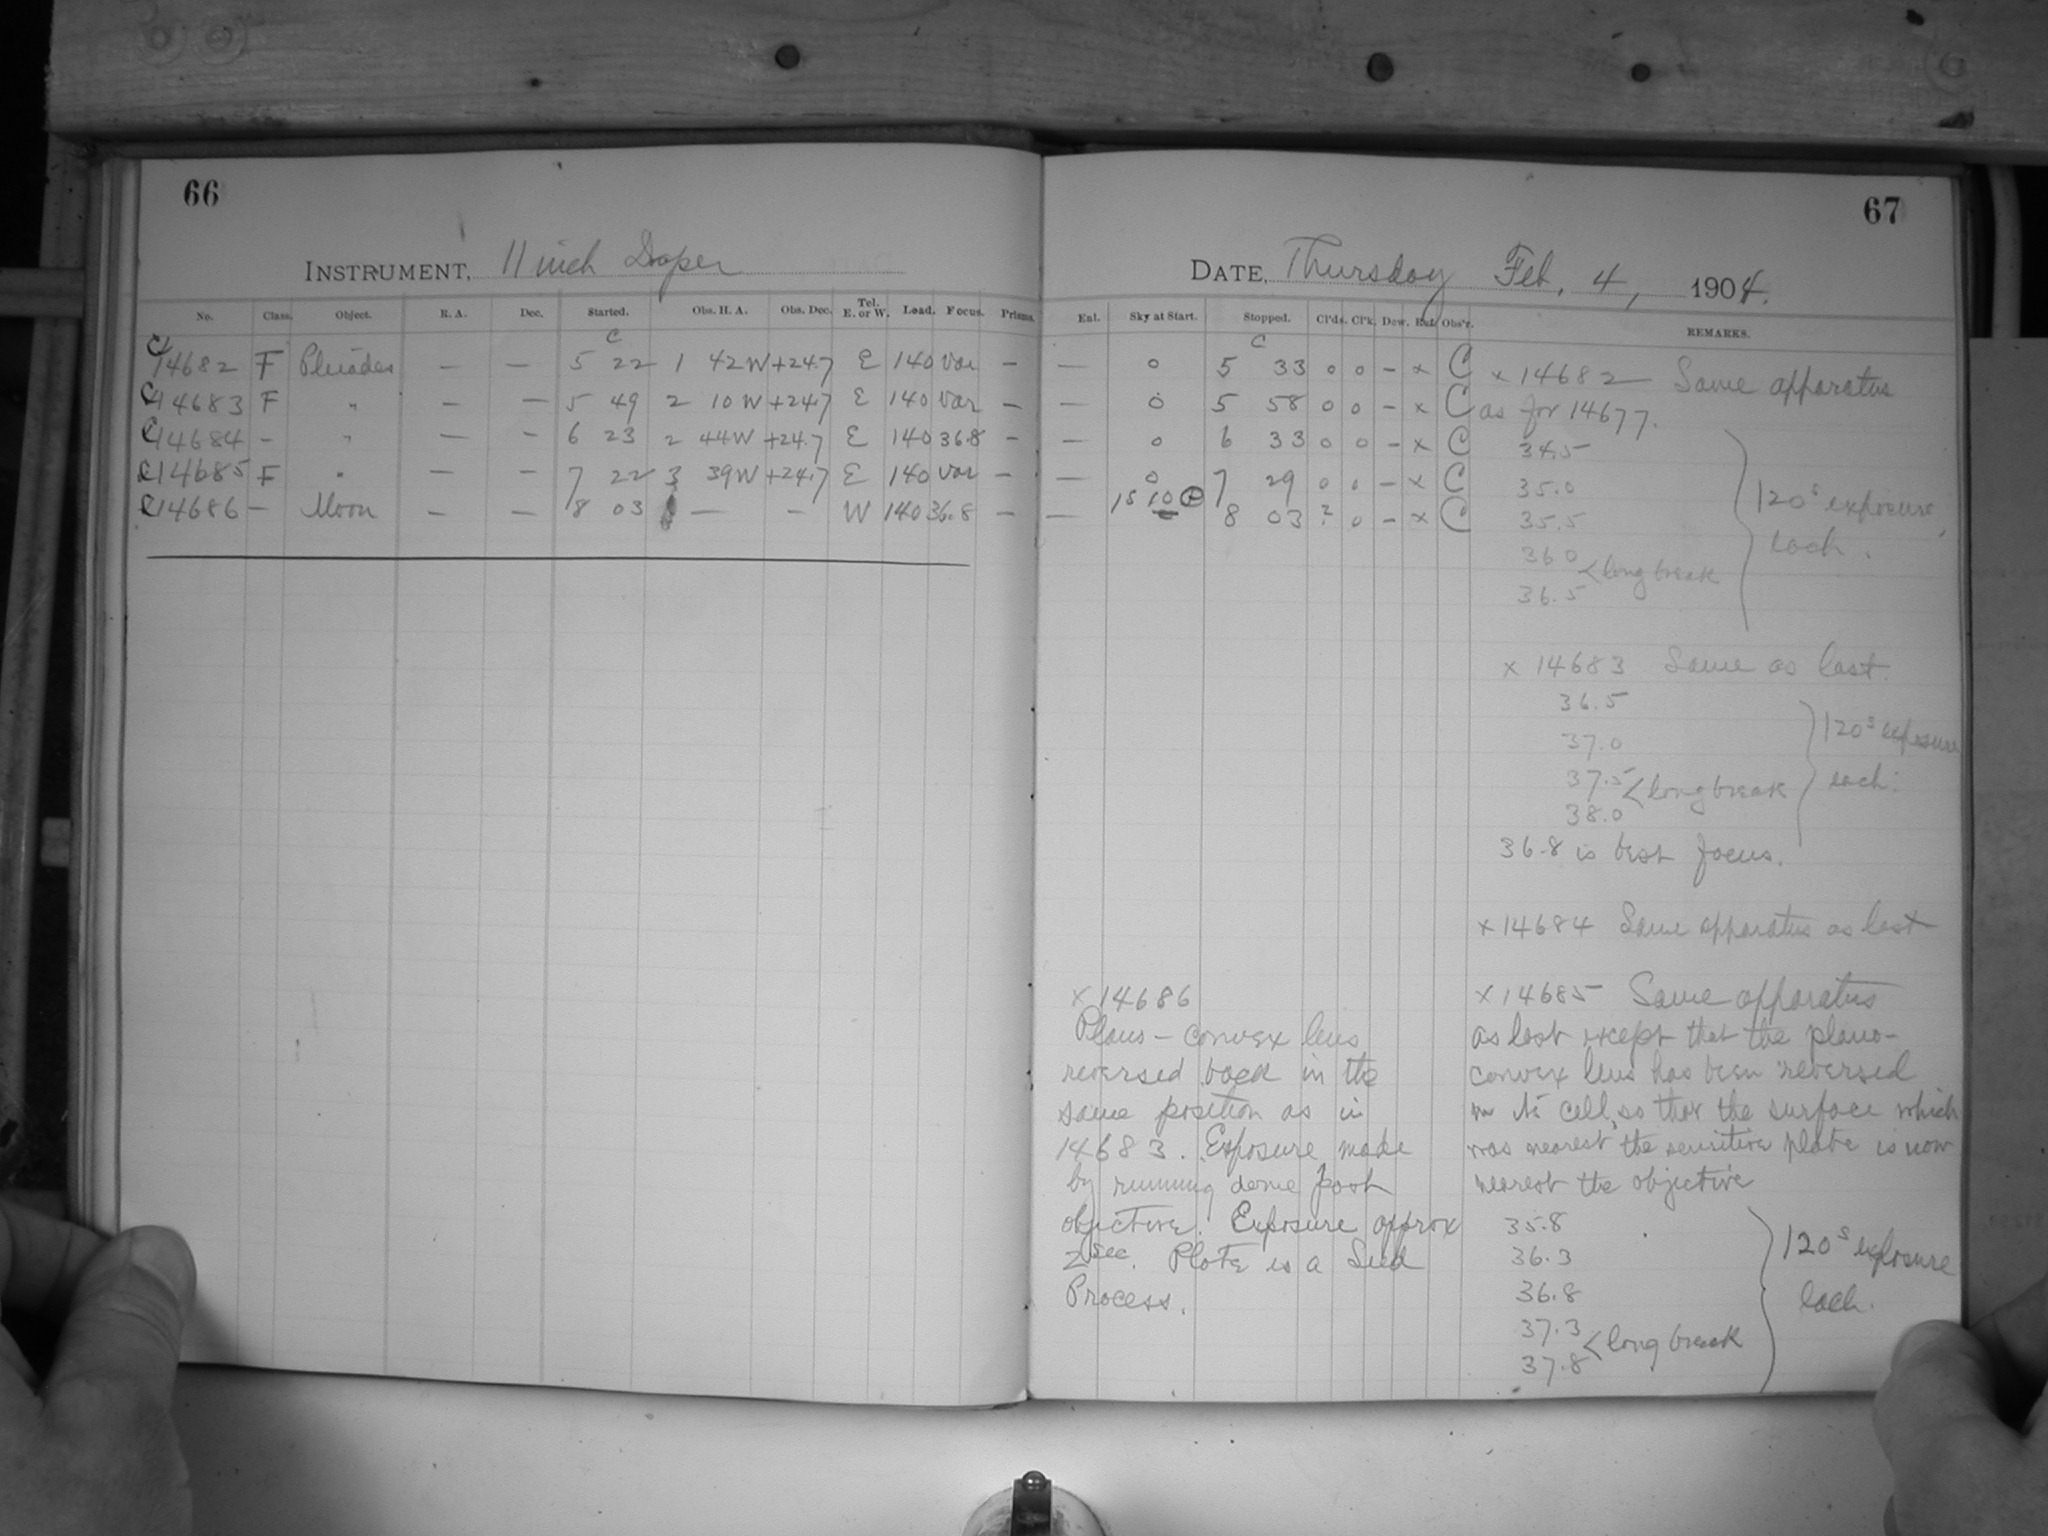 66
INSTRUMENT, 11 inch Draper
No. Class. Object. R. A. Dec. Started. Obs. H. A. Obs. Dec. Tel. E. or W. Load. Focus. Prisms.
C
C 14682 F Pleiades — — 5 22 1 42 W +24.7 E 140 var —
C 14683 F " — — 5 49 2 10 W +24.7 E 140 var —
C 14684 - " — — 6 23 2 44 W +24.7 E 140 36.8 —
C 14685 F " — — 7 22 3 39 W +24.7 E 140 var —
C 14686 - Moon — — 8 03 — — W 140 36.8 —
67
DATE, Thursday Feb. 4, 1904.
Enl. Sky at Start. Stopped. Cl'ds. Cl'k. Dew. Obs'r. REMARKS.
C
— 0 5 33 0 0 – x C
— 0 5 58 0 0 – x C
— 0 6 33 0 0 – x C
— 0 7 29 0 0 – x C
— 15 10 8 03 ? 0 – x C
x 14682 — Same apparatus
as for 14677.
34.5
35.0
35.5
36.0
36.5
< long break
120s exposure
each.
x 14683 Same as last
36.5
37.0
37.5
38.0
< long break
120s exposure
each.
36.8 is best focus.
x 14684 Same apparatus as last
x 14685 Same apparatus
as last except that the plano-
convex lens has been reversed
in its cell, so that the surface which
was nearest the sensitive plate is now
nearest the objective
35.8
36.3
36.8
37.3
37.8
< long break
120s exposure
each.
x 14686
Plano-convex lens
reversed back in the
same position as in
14683. Exposure made
by running dome past
objective. Exposure approx
2 sec. Plate is a Seed
Process.